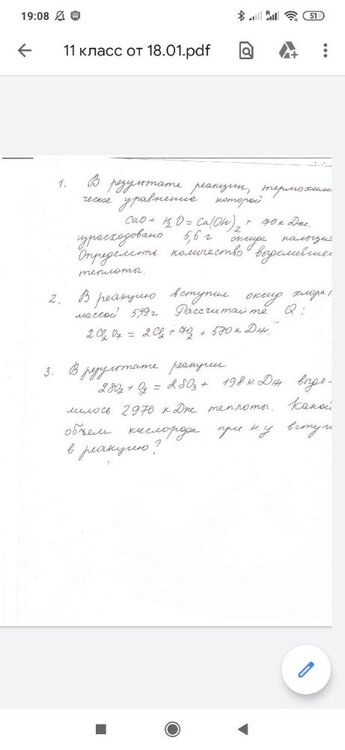 19:08
51
11 класс от 18.01.pdf
1. В результате реакции, термохими
ческое уравнение которой
CaO + H₂O = Ca(OH)₂ + 70 кДж,
израсходовано 5,6 г оксида кальция
Определить количество выделившейс
теплоты.
2. В реакцию вступил оксид хлора
массой 549г Рассчитайте Q:
2Cl₂O₇ = 2Cl₂ + 7O₂ + 570 кДж.
3. В результате реакции
2SO₂ + O₂ = 2SO₃ + 198 кДж выде-
лилось 2970 кДж теплоты. Какой
объем кислорода при н.у вступи
в реакцию?